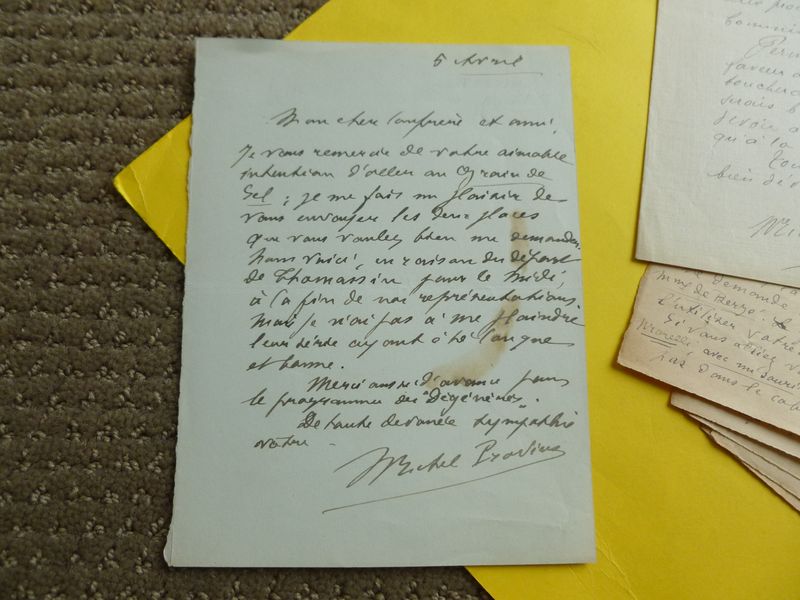 5 Avril
Mon cher confrère et ami,
Je vous remercie de votre aimable
intention d'aller au Grain de
Sel ; je me fais un plaisir de
vous envoyer les deux places
que vous voulez bien me demander.
Nous voici, en raison du départ
de Thomassin pour le Midi,
à la fin de nos représentations.
Mais je n'ai pas à me plaindre
leur série ayant été longue
et bonne.
Merci aussi d'avance pour
le programme des Dégénérés.
De toute dévouée sympathie
votre
Michel Provins
faveur
qu'à la
bien dé
demande
Mme de
votre
Si vous alliez
avec un
pas dans le